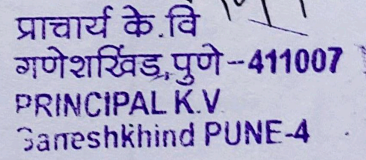 प्राचार्य के.वि
गणेशखिंड,पुणे-411007
PRINCIPAL K.V
Ganeshkhind PUNE-4